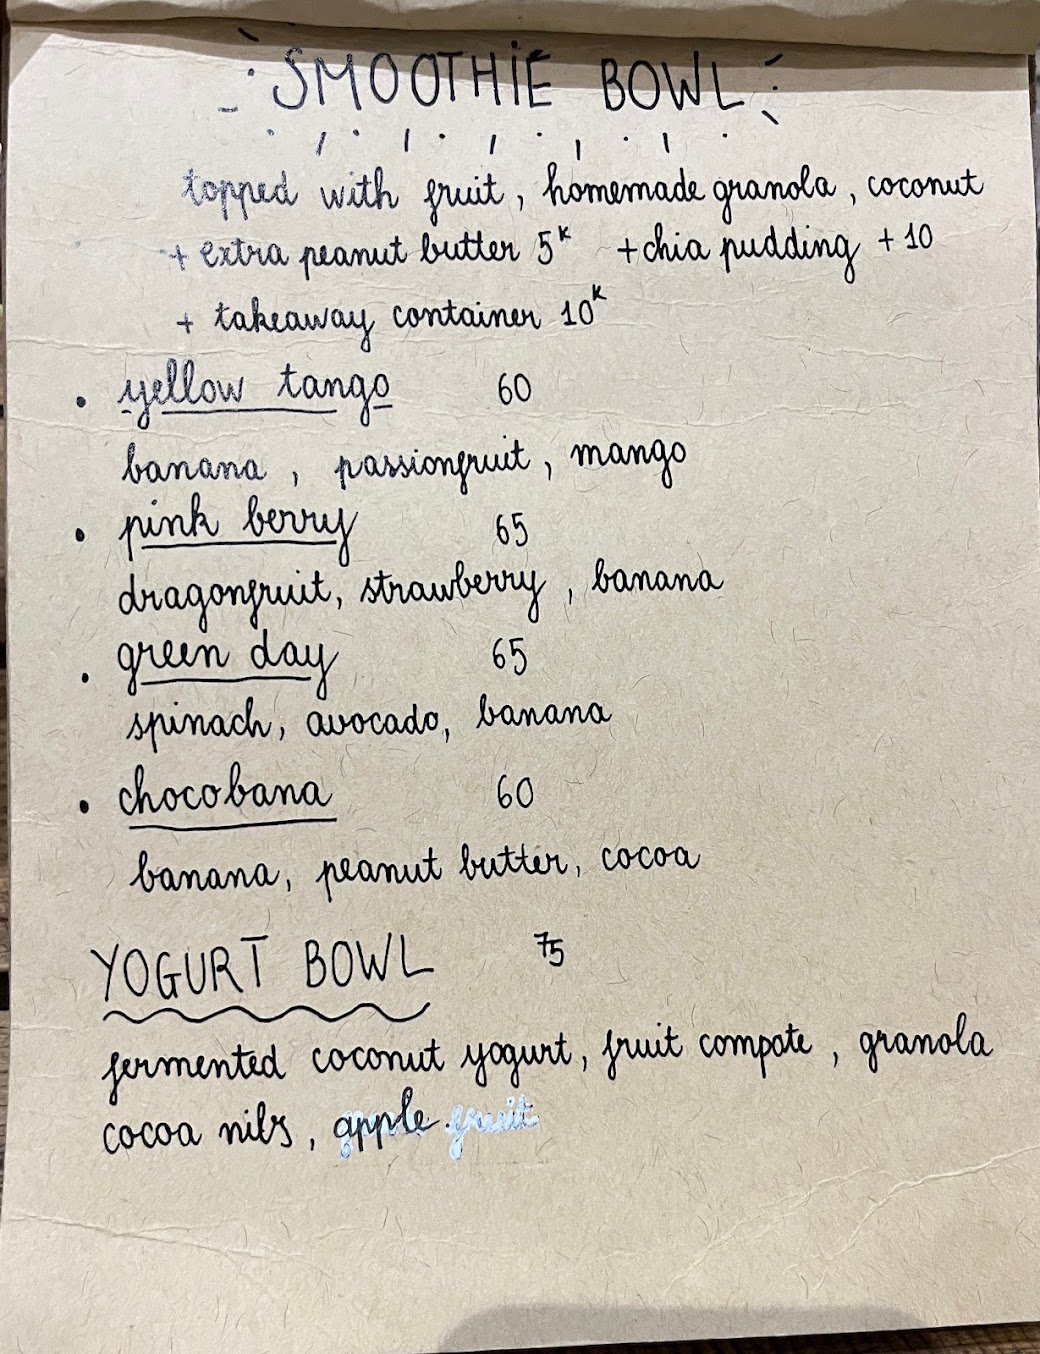 SMOOTHIE BOWL
topped with fruit, homemade granola, coconut
+ extra peanut butter 5k + chia pudding + 10
+ takeaway container 10k
• yellow tango 60
banana, passionfruit, mango
• pink berry 65
dragonfruit, strawberry, banana
• green day 65
spinach, avocado, banana
• chocobana 60
banana, peanut butter, cocoa
YOGURT BOWL 75
fermented coconut yogurt, fruit compote, granola
cocoa nibs, apple fruit